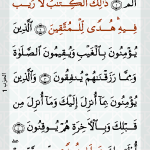 الٓمٓ ۝ ذَٰلِكَ ٱلْكِتَٰبُ لَا رَيْبَ
فِيهِ هُدًى لِّلْمُتَّقِينَ ۝ ٱلَّذِينَ
يُؤْمِنُونَ بِٱلْغَيْبِ وَيُقِيمُونَ ٱلصَّلَوٰةَ
وَمِمَّا رَزَقْنَٰهُمْ يُنفِقُونَ ۝ وَٱلَّذِينَ
يُؤْمِنُونَ بِمَآ أُنزِلَ إِلَيْكَ وَمَآ أُنزِلَ مِن
قَبْلِكَ وَبِٱلْءَاخِرَةِ هُمْ يُوقِنُونَ ۝
الحزب 1